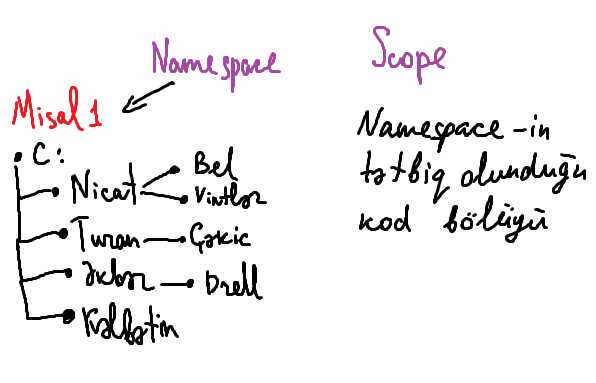 Namespace
Scope
Misal 1
C:
Nicat
Bel
Vintlər
Turan
Çəkic
Əkbər
Drell
Kəlbətin
Namespace-in
tətbiq olunduğu
kod bölüyü